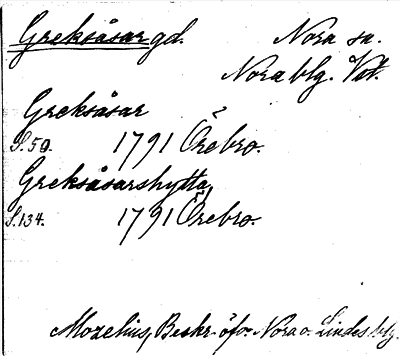 Greksåsar gd. Nora sn.
Nora blg. Vstm.
Greksåsar
S. 50. 1791 Örebro.
Greksåsarshytta,
S. 134. 1791 Örebro.
Mozelius, Beskr. öfv. Nora o. Lindes blg.